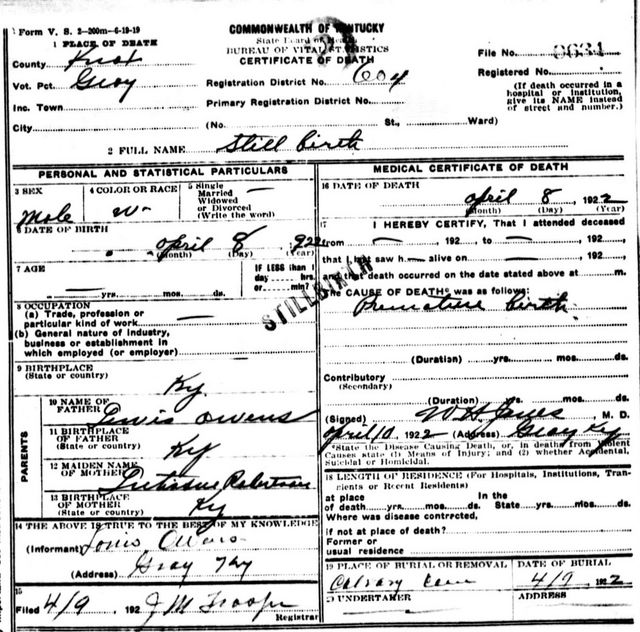 Form V. S. 2-200m-6-19-19
1 PLACE OF DEATH
County Knox
Vot. Pct. Gray
Inc. Town
City
COMMONWEALTH OF KENTUCKY
State Board of Health
BUREAU OF VITAL STATISTICS
CERTIFICATE OF DEATH
Registration District No. 604
Primary Registration District No.
(No. St., Ward)
File No. 9634
Registered No.
(If death occurred in a
hospital or institution,
give its NAME instead
of street and number.)
2 FULL NAME Still birth
PERSONAL AND STATISTICAL PARTICULARS
3 SEX
Male
4 COLOR OR RACE
W
5 Single
Married
Widowed
or Divorced
(Write the word)
6 DATE OF BIRTH
April 8 1922
(Month) (Day) (Year)
7 AGE
yrs. mos. ds.
IF LESS than 1
day hrs.
or min.?
8 OCCUPATION
(a) Trade, profession or
particular kind of work
(b) General nature of industry,
business or establishment in
which employed (or employer)
9 BIRTHPLACE
(State or country)
Ky
PARENTS
10 NAME OF
FATHER Owens
11 BIRTHPLACE
OF FATHER
(State or country) Ky
12 MAIDEN NAME
OF MOTHER
13 BIRTHPLACE
OF MOTHER
(State or country) Ky
14 THE ABOVE IS TRUE TO THE BEST OF MY KNOWLEDGE
(Informant) Owens
(Address) Gray Ky
15
Filed 4/9 192 J M
Registrar
STILLBIRTH
MEDICAL CERTIFICATE OF DEATH
16 DATE OF DEATH
April 8, 1922
(Month) (Day) (Year)
17 I HEREBY CERTIFY, That I attended deceased
from 192 to 192
that I last saw h alive on 192
and that death occurred on the date stated above at m.
The CAUSE OF DEATH* was as follows:
Premature birth
(Duration) yrs. mos. ds.
Contributory
(Secondary)
(Duration) yrs. mos. ds.
(Signed) W H M. D.
April 10, 1922 (Address) Gray Ky
*State the Disease Causing Death, or, in deaths from Violent
Causes state (1) Means of Injury; and (2) whether Accidental,
Suicidal or Homicidal.
18 LENGTH OF RESIDENCE (For Hospitals, Institutions, Tran-
sients or Recent Residents)
At place In the
of death yrs. mos. ds. State yrs. mos. ds.
Where was disease contrcted,
if not at place of death?
Former or
usual residence
19 PLACE OF BURIAL OR REMOVAL
Calvary Cem
DATE OF BURIAL
4/9 1922
UNDERTAKER
ADDRESS